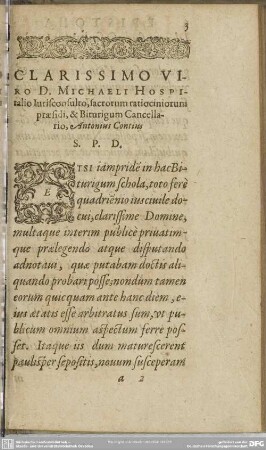 3
CLARISSIMO VI-
RO D. MICHAELI HOSPI-
talio Iurisconsulto, sacrorum ratiociniorum
præsidi, & Biturigum Cancella-
rio, Antonius Contius
S. P. D.
ETSI iampridē in hac Bi-
turigum schola, toto ferè
quadriēnio ius ciuile do-
cui, clarissime Domine,
multaque interim publicè priuatim-
que prælegendo atque disputando
adnotaui, quæ putabam doctis ali-
quando probari posse: nondum tamen
eorum quicquam ante hanc diem, e-
ius ætatis esse arbitratus sum, vt pu-
blicum omnium aspectum ferre pos-
set. Itaque vs dum maturescerent
paulisper sepositis, nouum susceperam
a 2
DFG